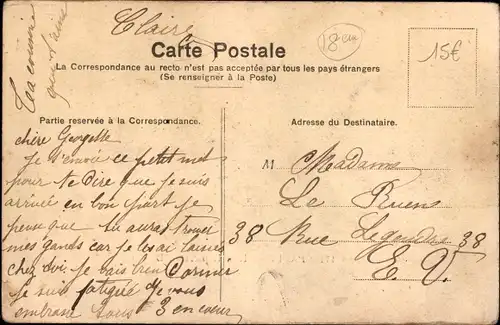 Claire
18 em
15€
Ta cousine
qui t'aime
Carte Postale
La Correspondance au recto n'est pas acceptée par tous les pays étrangers
(Se renseigner à la Poste)
Partie reservée à la Correspondance.
Adresse du Destinataire.
chère Georgette
Je t'envoie ce petit mot
pour te dire que je suis
arrivée en bon port je
pense que tu auras trouvé
mes gands car je les ai laissés
chez toi. Je vais bien Dormir
Je suis fatiguée Je vous
embrasse tous 3 en cœur
M Madame
Le Ruen
38 Rue Legendre 38
E. V.